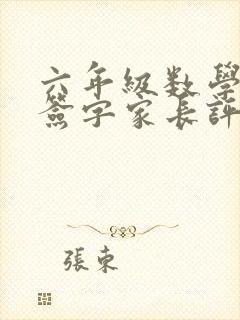 六年級数學
簽字家長評
張東